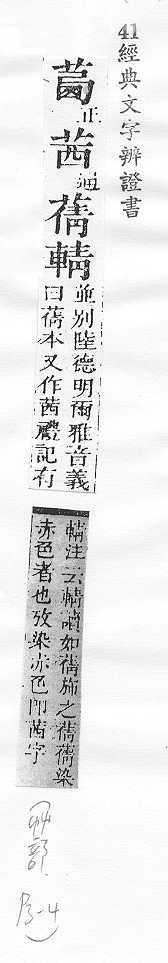 41經典文字辨證書
正茜通蒨輤
並別陸德明爾雅音義
曰蒨本又作茜禮記有
輤注云輤讀如蒨旆之蒨蒨染
赤色者也攷染赤色即茜字
艸部